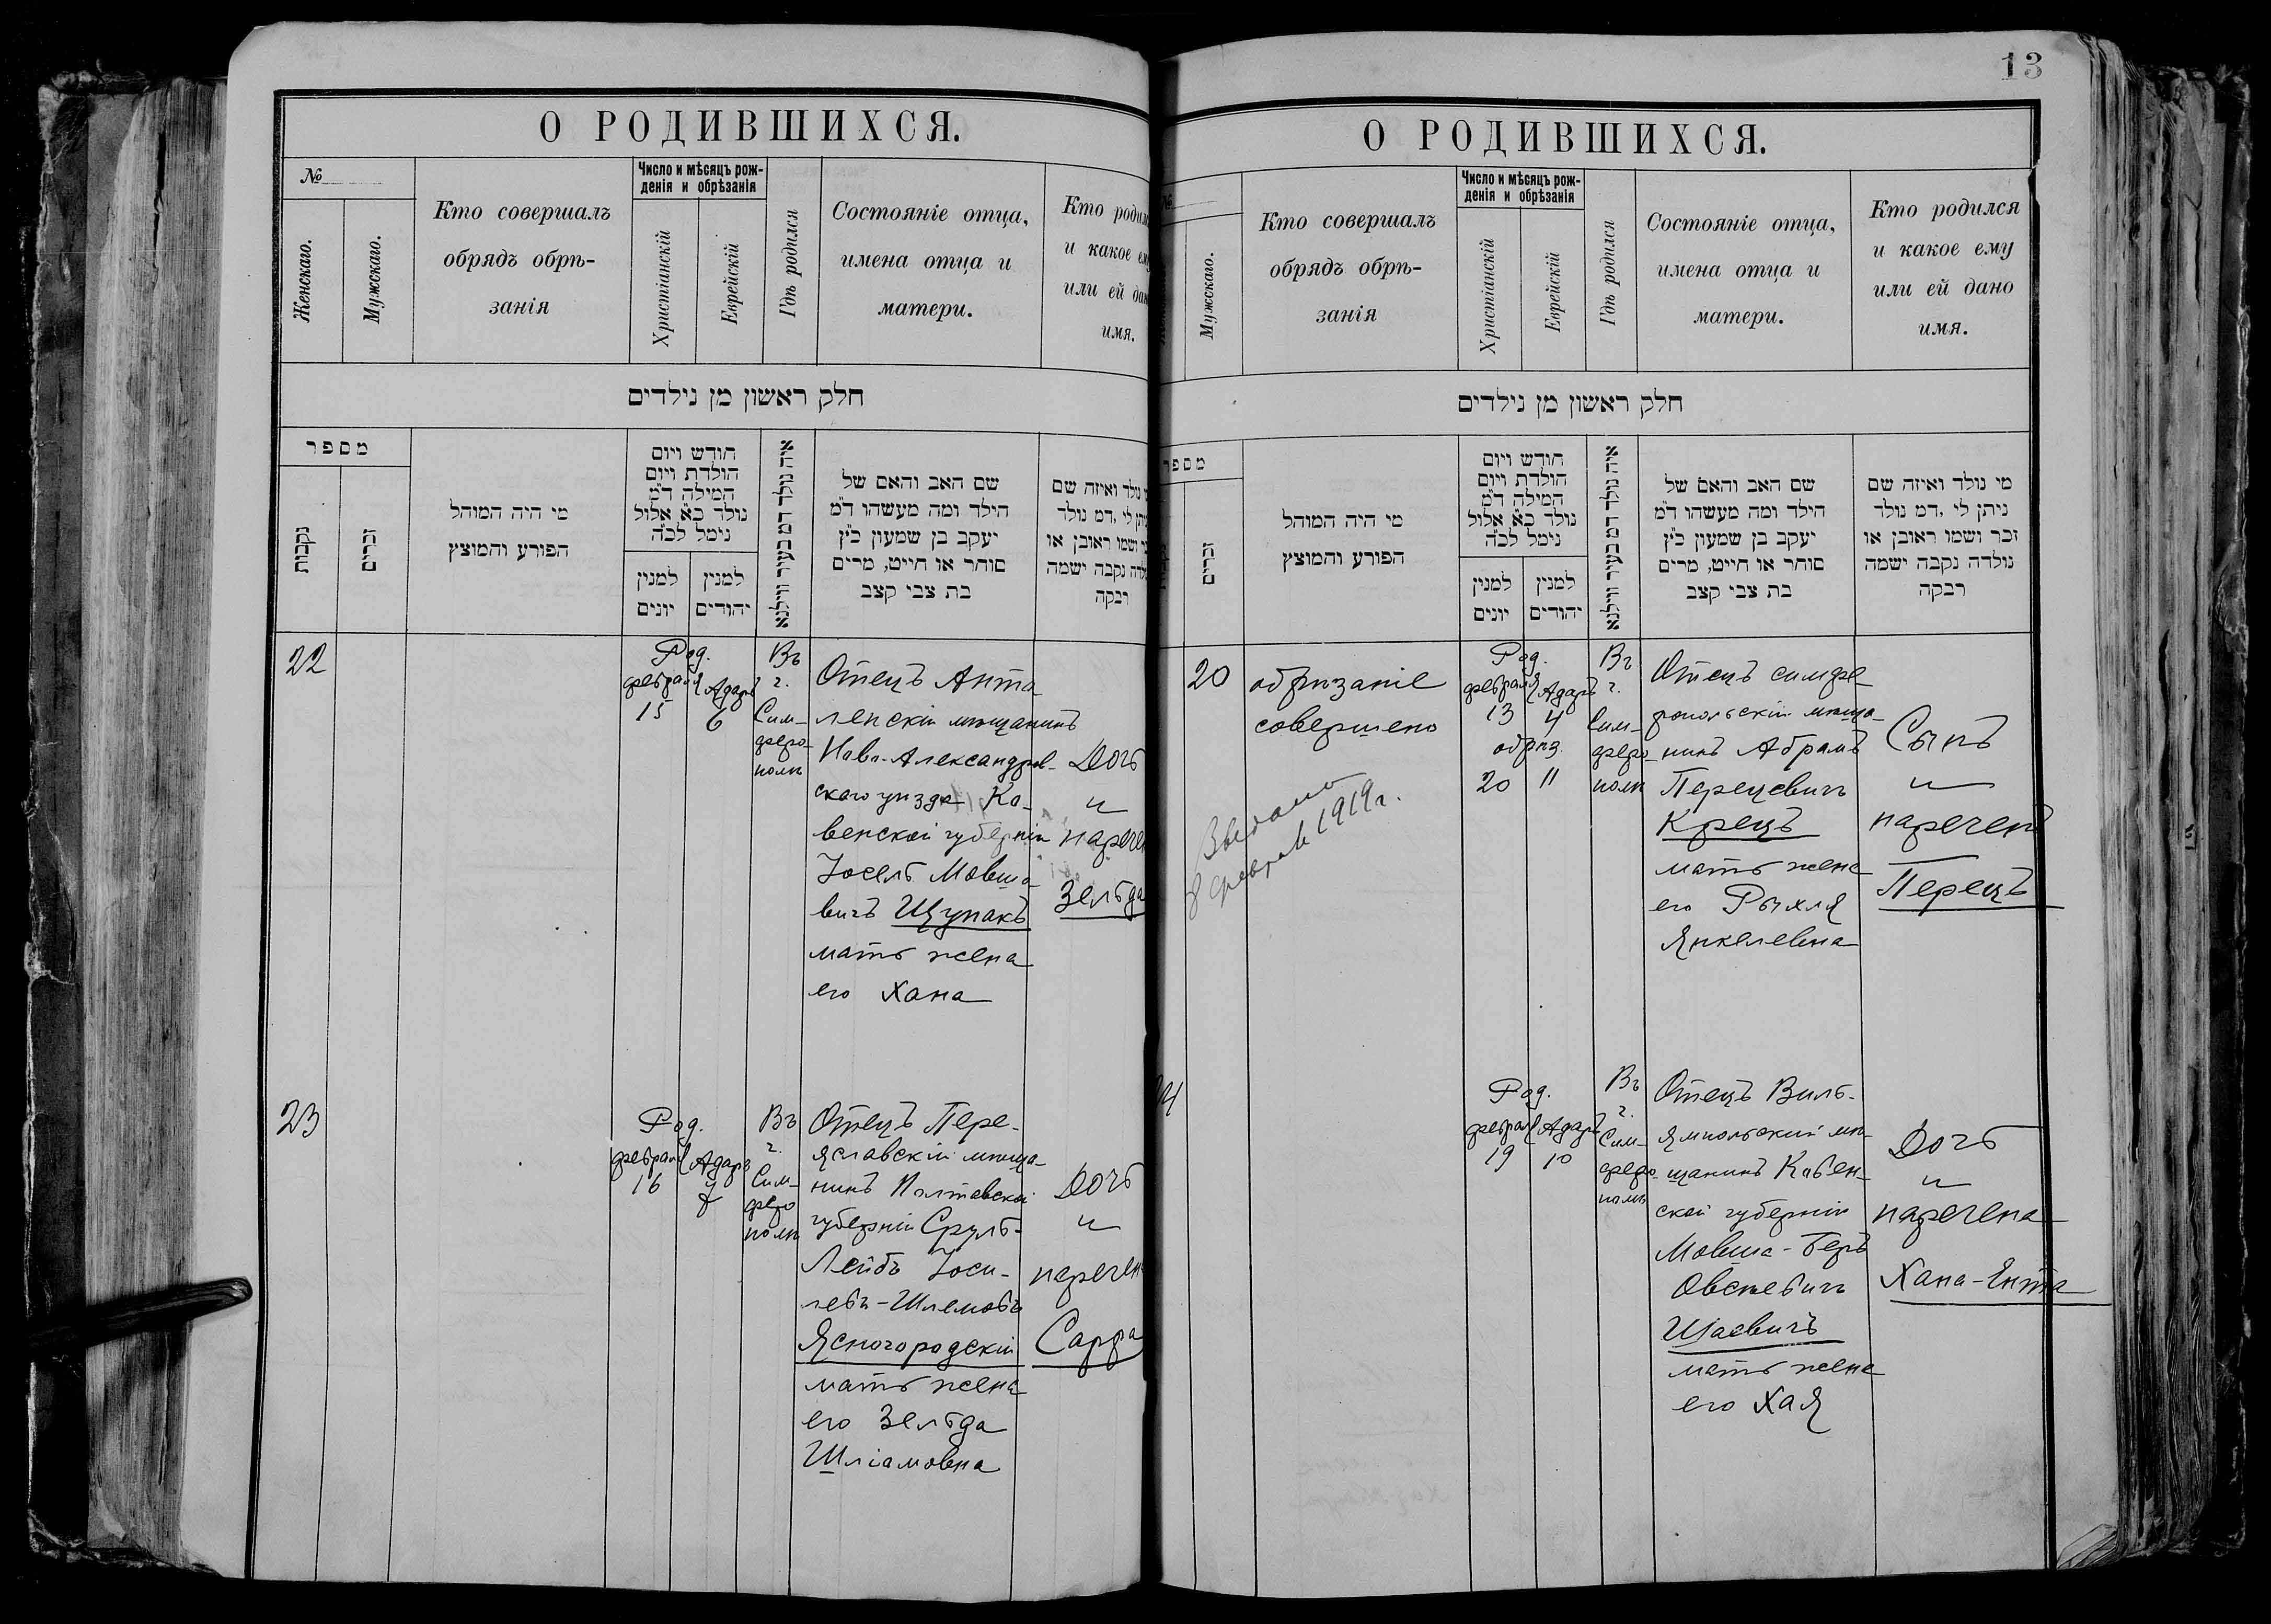 О РОДИВШИХСЯ.
№
Женскаго.
Мужскаго.
Кто совершалъ
обрядъ обрѣ-
занія
Число и мѣсяцъ рож-
денія и обрѣзанія
Христіанскій
Еврейскій
Гдѣ родился
Состояніе отца,
имена отца и
матери.
Кто родил
и какое ему
или ей дан
имя.
חלק ראשון מן נילדים
מספר
נקבות
זכרים
מי היה המוהל
הפורע והמוצץ
חודש ויום
הולדת ויום
המילה ד״מ
נולד כ״א אלול
נימל לכ״ה
למנין
יונים
למנין
יהודים
איה נולד דמ בעיר ווילנא
שם האב והאם של
הילד ומה מעשהו ד״מ
יעקב בן שמעון כ״ץ
סוחר או חייט, מרים
בת צבי קצב
נולד ואיזה שם
ניתן לי, דמ נולד
ושמו ראובן או
נולדה נקבה ישמה
רבקה
22
Род.
февраля
15
Адаръ
6
Въ
г.
Сим-
феро-
полѣ
Отецъ Анта-
лепскій мѣщанинъ
Ново-Александров-
скаго уѣзда Ко-
венской губерніи
Іосель Мовша-
вичъ Щупакъ
мать жена
его Хана
Дочь
и
нарече
Зельда
23
Род.
февраля
16
Адаръ
7
Въ
г.
Сим-
феро
полѣ
Отецъ Пере-
яславскій мѣща-
нинъ Полтавской
губерніи Сруль-
Лейбъ Іоси-
левъ-Шлемовъ
Ясногородскій
мать жена
его Зельда
Шліамовна
Дочь
и
наречен
Сарра
13
О РОДИВШИХСЯ.
№
Мужскаго.
Кто совершалъ
обрядъ обрѣ-
занія
Число и мѣсяцъ рож-
денія и обрѣзанія
Христіанскій
Еврейскій
Гдѣ родился
Состояніе отца,
имена отца и
матери.
Кто родился
и какое ему
или ей дано
имя.
חלק ראשון מן נילדים
מספר
זכרים
מי היה המוהל
הפורע והמוצץ
חודש ויום
הולדת ויום
המילה ד״מ
נולד כ״א אלול
נימל לכ״ה
למנין
יונים
למנין
יהודים
איה נולד דמ בעיר ווילנא
שם האב והאם של
הילד ומה מעשהו ד״מ
יעקב בן שמעון כ״ץ
סוחר או חייט, מרים
בת צבי קצב
מי נולד ואיזה שם
ניתן לי, דמ נולד
זכר ושמו ראובן או
נולדה נקבה ישמה
רבקה
20
обрѣзаніе
совершено
Выдано
8 февраля 1919 г.
Род.
февраля
13
Адаръ
4
обрѣз.
20 11
Въ
г.
Сим-
феро-
полѣ
Отецъ симфе-
ропольскій мѣща-
нинъ Абрамъ
Перецевичъ
Крецъ
мать жена
его Рыхля
Янкелевна
Сынъ
и
нареченъ
Перецъ
24
Род.
февраля
19
Адаръ
10
Въ
г.
Сим-
феро-
полѣ
Отецъ Виль-
ямпольский мѣ-
щанинъ Ковен-
ской губерніи
Мовша-Беръ
Овсѣевичъ
мать жена
его Хая
Дочь
и
наречена
Хана-Ента